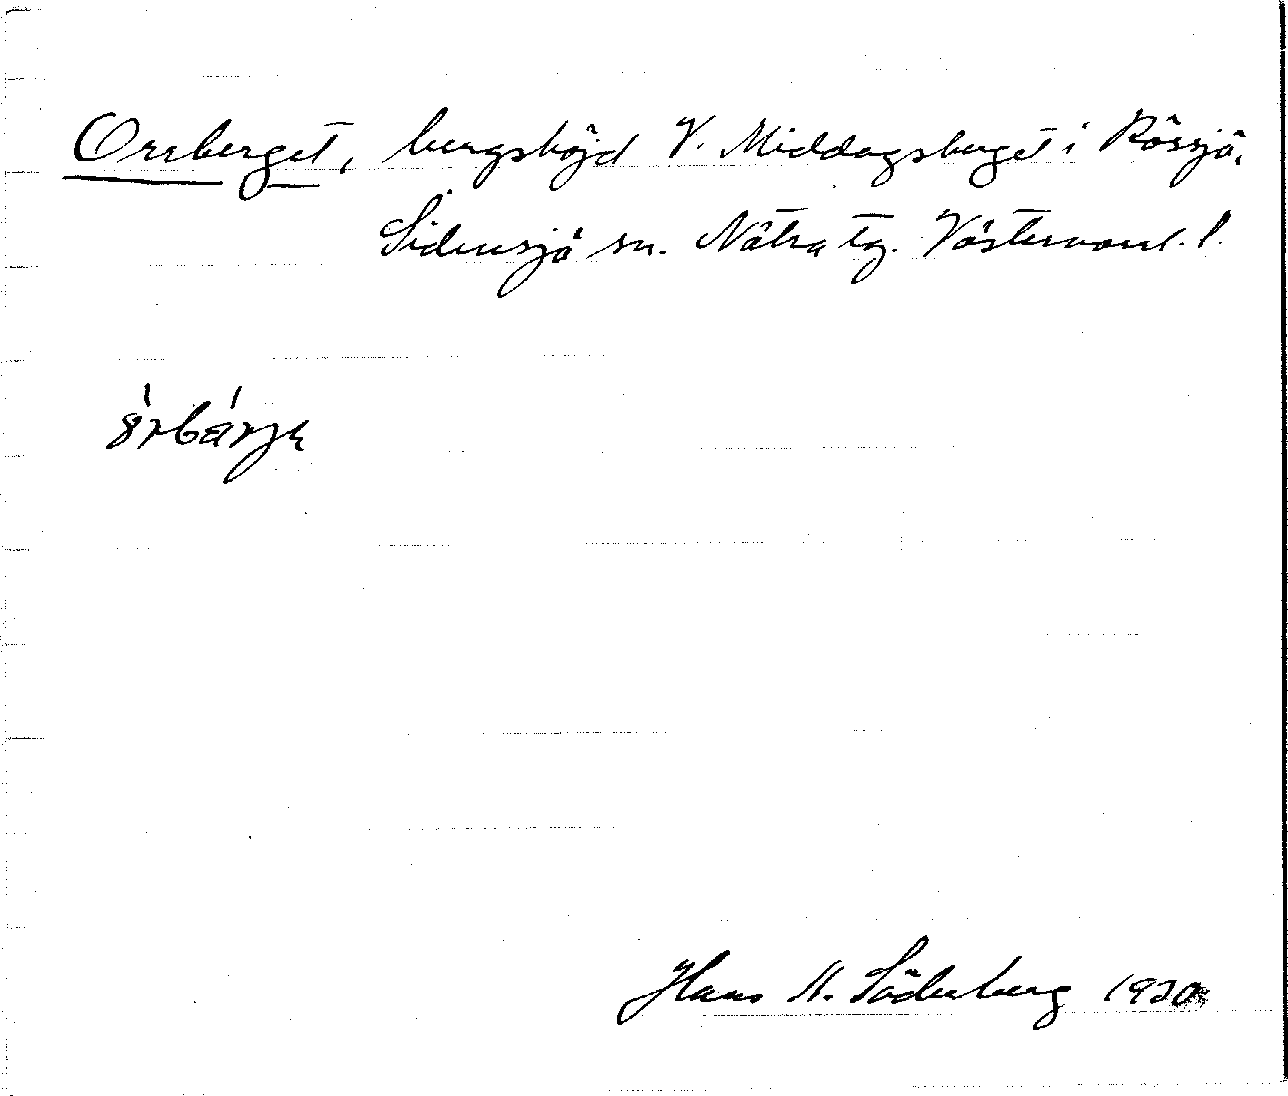 Orrberget, bergshöjd V. Middagsberget i Rössjö,
Sidensjö sn. Nätra tg. Västernorrl. l.
Hans H. Söderberg 1920